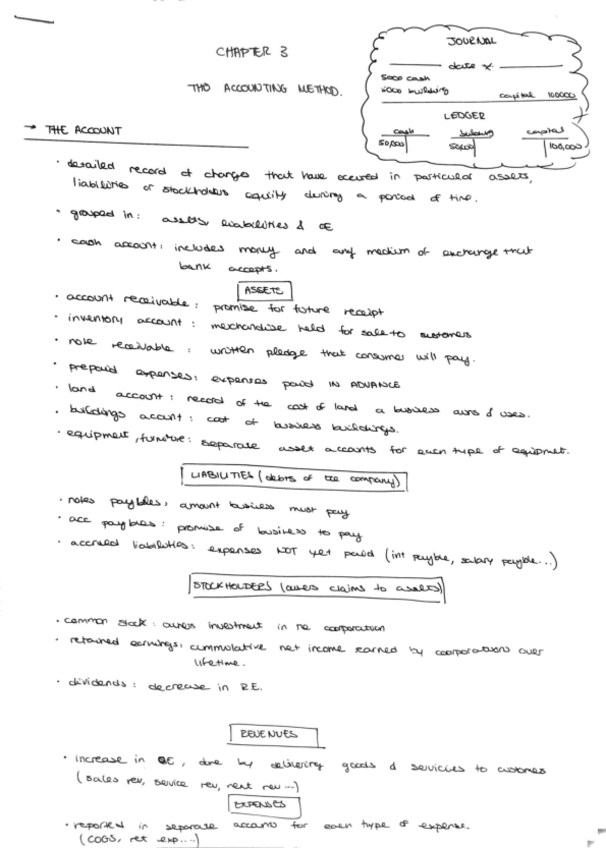 CHAPTER 3
THO ACCOUNTING METHOD.
JOURNAL
date x
5000 cash
building
capital 100000
LEDGER
cash building capital
50,000 50,000 100,000
→ THE ACCOUNT
• detailed record of changes that have occured in particular assets,
liabilities or stockholders equity during a period of time.
• grouped in: assets, liabilities & OE
• cash account: includes money and any medium of exchange that
bank accepts.
ASSETS
• account receivable: promise for future receipt
• inventory account: merchandise held for sale to customers
• note receivable: written pledge that consumer will pay.
• prepaid expenses: expenses paid IN ADVANCE
• land account: record of the cost of land a business owns & uses.
• buildings account: cost of business buildings.
• equipment, furniture: separate asset accounts for each type of equipmet.
LIABILITIES (debts of the company)
• notes payables, amount business must pay
• acc payables: promise of business to pay
• accrued liabilities: expenses NOT yet paid (int payble, salary payble...)
STOCKHOLDERS (owners claims to assets)
• common stock: owners investment in the coorporation
• retained earnings: cummulative net income earned by coorporations over
lifetime.
• dividends: decrease in RE.
REVENUES
• increase in OE, done by delivering goods & services to customes
(sales rev, service rev, rent rev...)
EXPENSES
• reported in separate accounts for each type of expense.
(COGS, ret exp....)